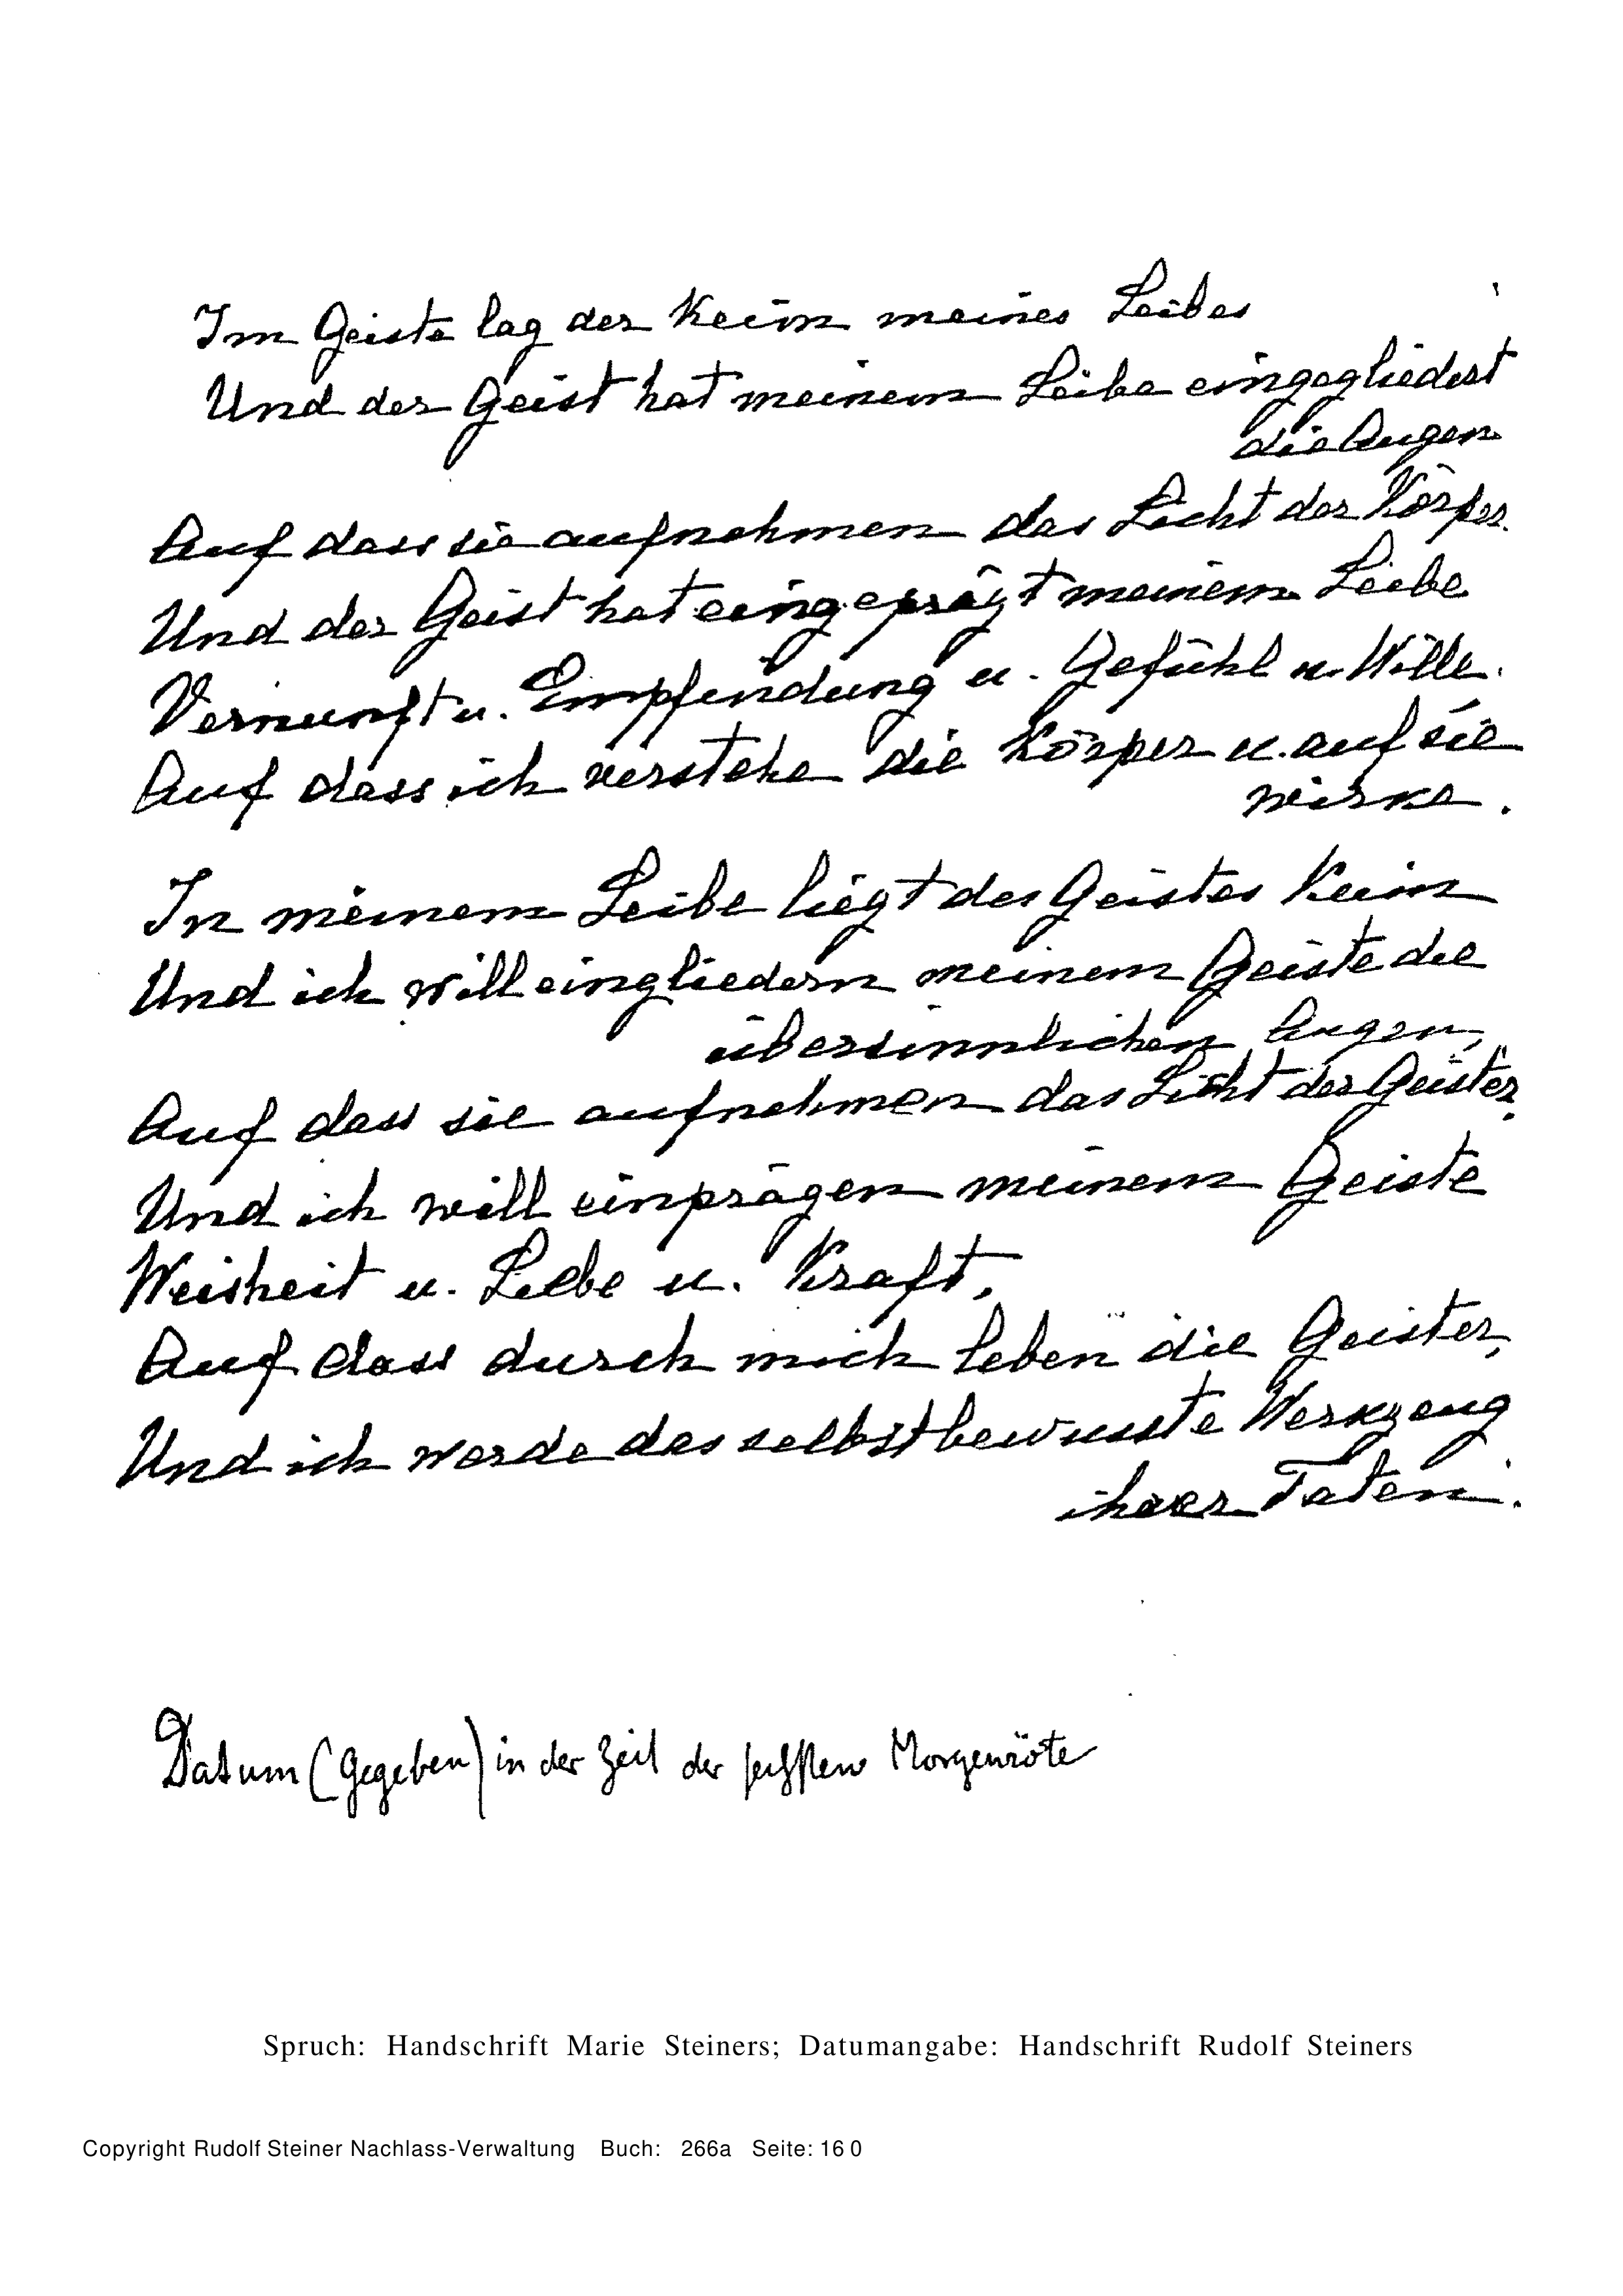 Im Geiste lag der Keim meines Leibes
Und der Geist hat meinem Leibe eingegliedert
die Augen
Auf dass sie aufnehmen das Licht der Körper.
Und der Geist hat eingeprägt meinem Leibe
Vernunft u. Empfindung u. Gefühl u. Wille.
Auf dass ich verstehe die Körper u. auf sie
wirke.
In meinem Leibe liegt des Geistes Keim
Und ich will eingliedern meinem Geiste die
übersinnlichen Augen,
Auf dass sie aufnehmen das Licht der Geister.
Und ich will einprägen meinem Geiste
Weisheit u. Liebe u. Kraft,
Auf dass durch mich leben die Geister,
Und ich werde das selbstbewusste Werkzeug
ihrer Taten.
Datum (Gegeben) in der Zeit der sechsten Morgenröte
Spruch: Handschrift Marie Steiners; Datumangabe: Handschrift Rudolf Steiners
Copyright Rudolf Steiner Nachlass-Verwaltung Buch: 266a Seite: 160